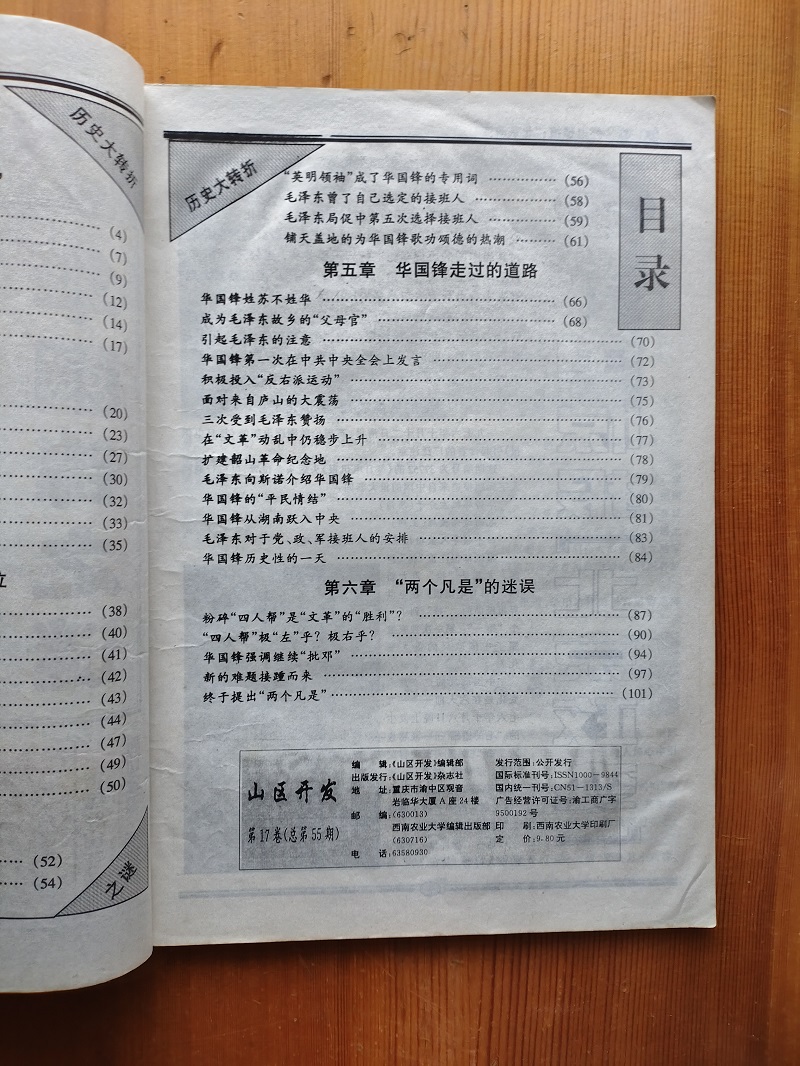 历史大转折
(4)
(7)
(9)
(12)
(14)
(17)
(20)
(23)
(27)
(30)
(32)
(33)
(35)
(38)
(40)
(41)
(42)
(43)
(44)
(47)
(49)
(50)
(52)
(54)
之谜
历史大转折
目录
“英明领袖”成了华国锋的专用词 ……………(56)
毛泽东曾了自己选定的接班人 ……………(58)
毛泽东局促中第五次选择接班人 ……………(59)
铺天盖地的为华国锋歌功颂德的热潮 ………(61)
第五章 华国锋走过的道路
华国锋姓苏不姓华 ……………(66)
成为毛泽东故乡的“父母官” ……………(68)
引起毛泽东的注意 ……………(70)
华国锋第一次在中共中央全会上发言 ……………(72)
积极投入“反右派运动” ……………(73)
面对来自庐山的大震荡 ……………(75)
三次受到毛泽东赞扬 ……………(76)
在“文革”动乱中仍稳步上升 ……………(77)
扩建韶山革命纪念地 ……………(78)
毛泽东向斯诺介绍华国锋 ……………(79)
华国锋的“平民情结” ……………(80)
华国锋从湖南跃入中央 ……………(81)
毛泽东对于党、政、军接班人的安排 ……………(83)
华国锋历史性的一天 ……………(84)
第六章 “两个凡是”的迷误
粉碎“四人帮”是“文革”的“胜利”? ……………(87)
“四人帮”极“左”乎?极右乎? ……………(90)
华国锋强调继续“批邓” ……………(94)
新的难题接踵而来 ……………(97)
终于提出“两个凡是” ……………(101)
山区开发
第17卷(总第55期)
编 辑:《山区开发》编辑部
出版发行:《山区开发》杂志社
地 址:重庆市渝中区观音
岩临华大厦A座24楼
邮 编:(630013)
西南农业大学编辑出版部
(630716)
电 话:63580930
发行范围:公开发行
国际标准刊号:ISSN1000-9844
国内统一刊号:CN51-1313/S
广告经营许可证号:渝工商广字
9500192号
印 刷:西南农业大学印刷厂
定 价:9.80元